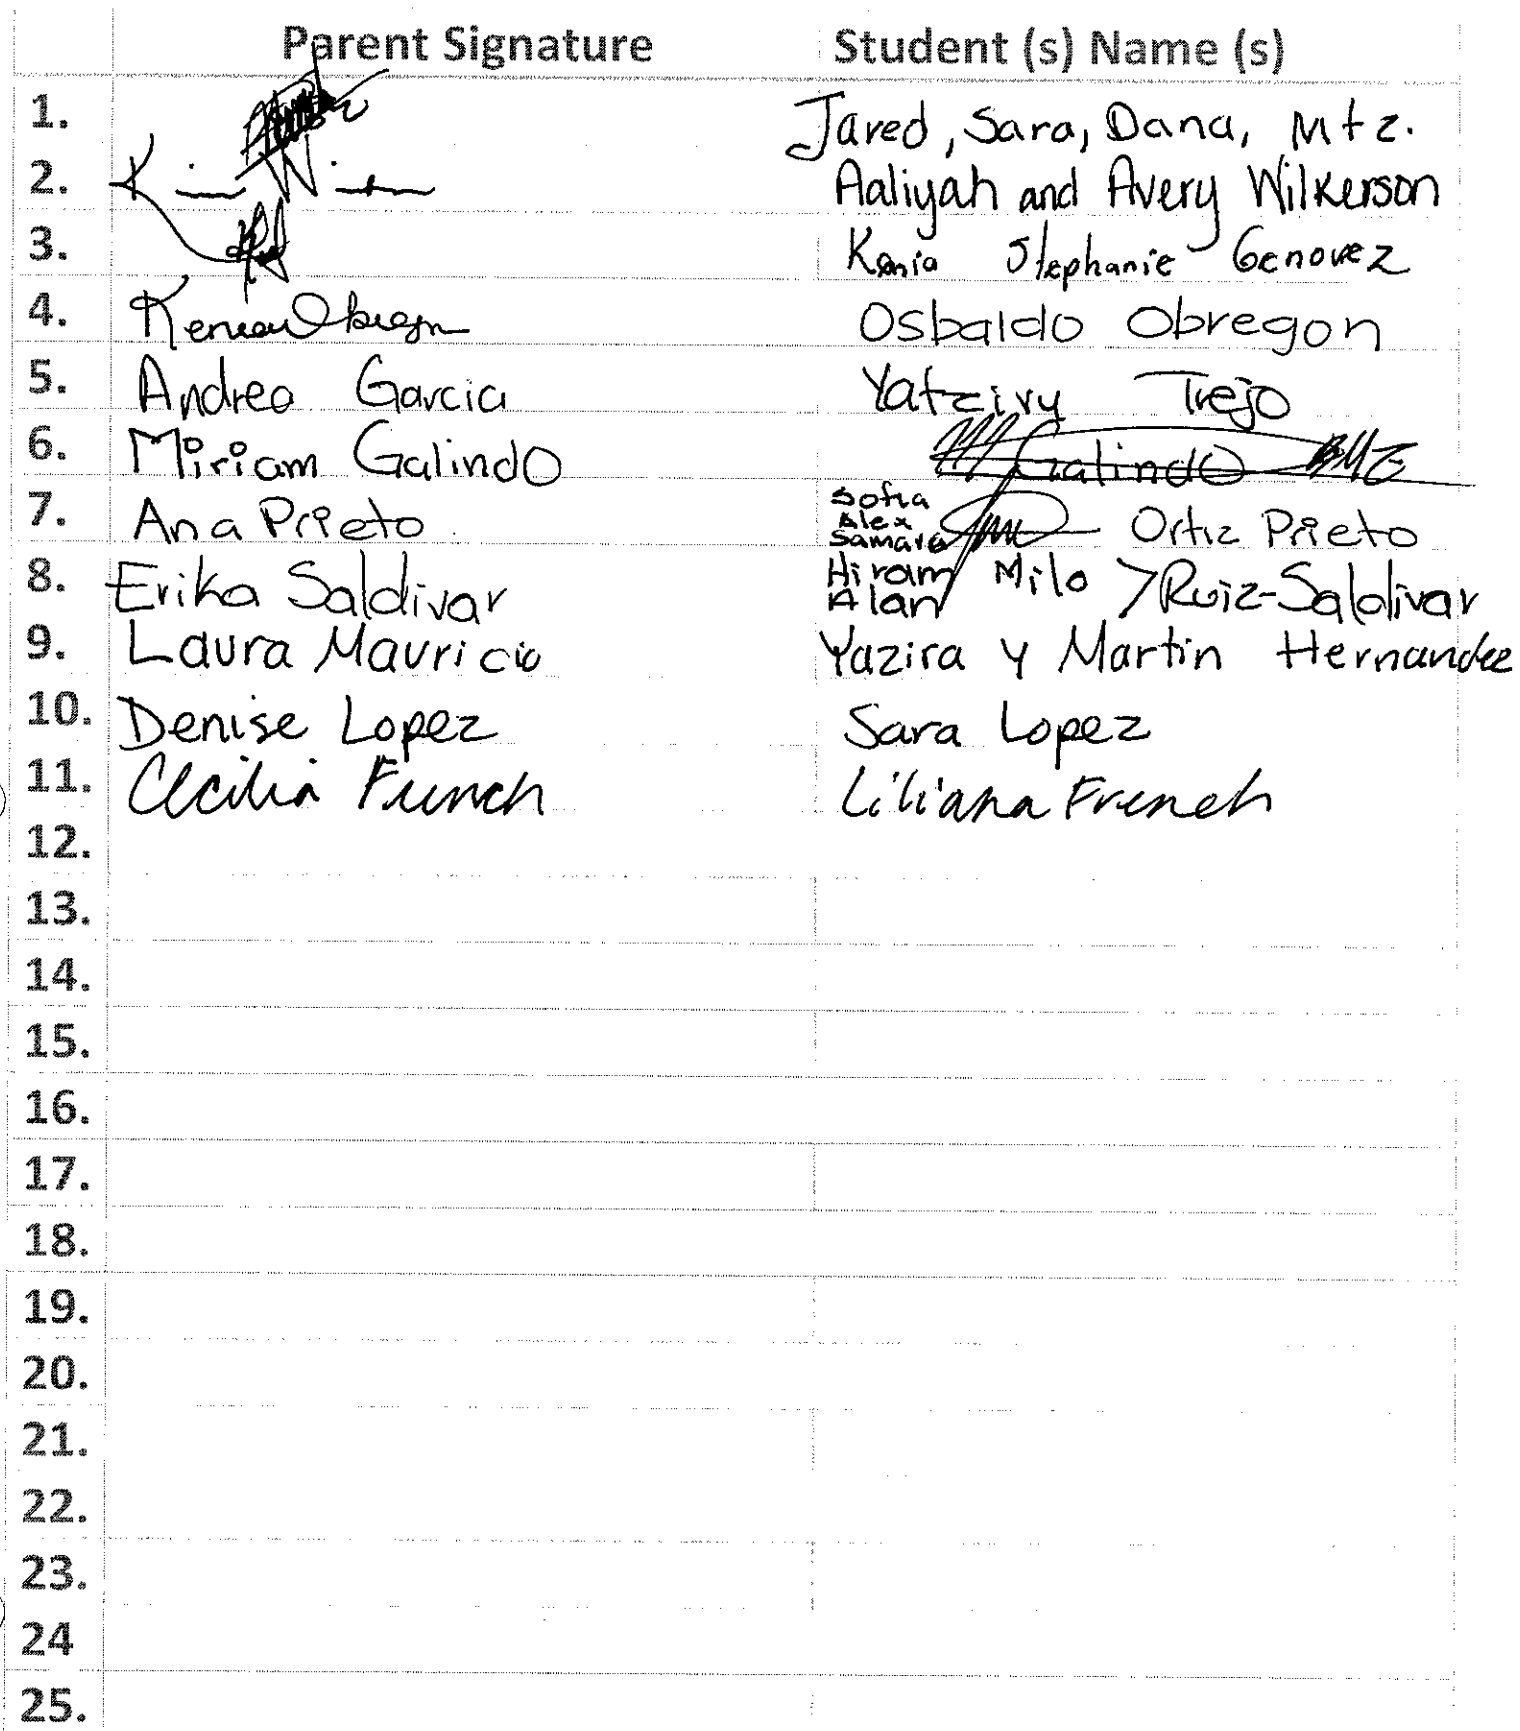 Parent Signature Student (s) Name (s)
1. Jared, Sara, Dana, Mtz.
2. Aaliyah and Avery Wilkerson
3. Kenia Stephanie Genovez
4. Obregon Osbaldo Obregon
5. Andrea Garcia Yatzivy Trejo
6. Miriam Galindo Galindo
7. Ana Prieto Sofia Alex Samara Ortiz Prieto
8. Erika Saldivar Hiram Milo Alan >Ruiz-Saldivar
9. Laura Mauricio Yazira y Martin Hernandez
10. Denise Lopez Sara Lopez
11. Cecilia French Liliana French
12.
13.
14.
15.
16.
17.
18.
19.
20.
21.
22.
23.
24
25.